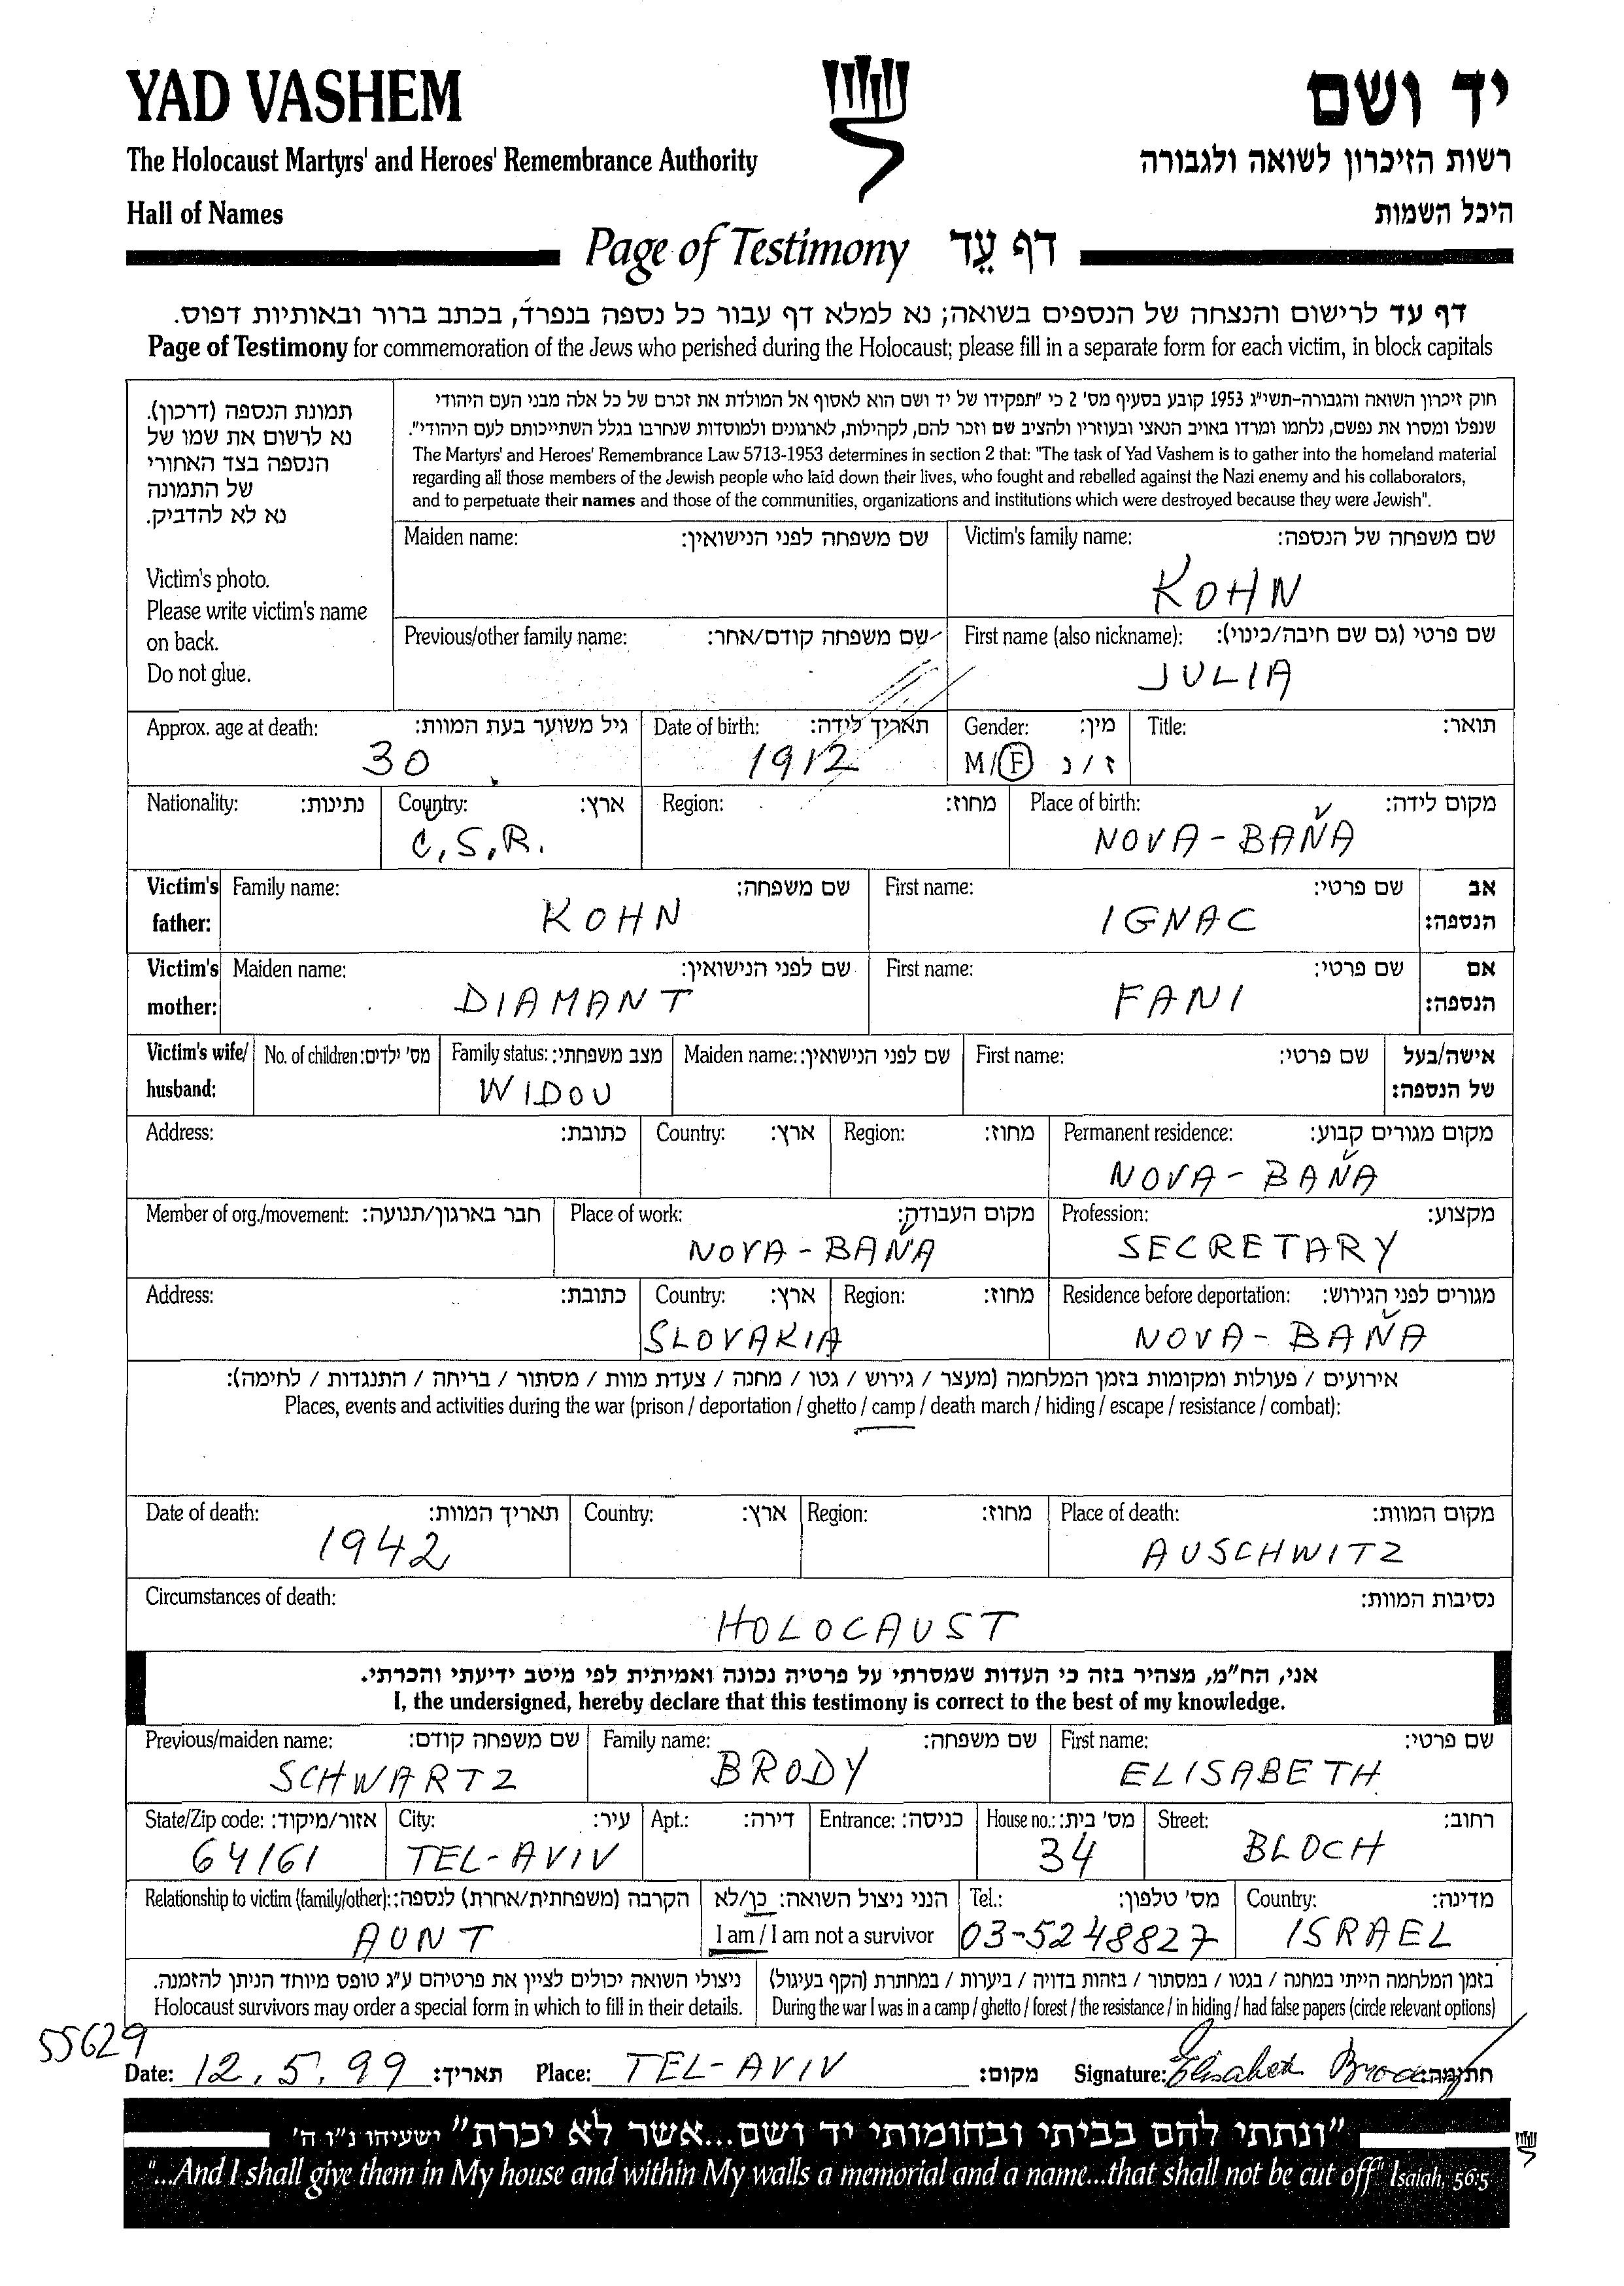 YAD VASHEM
יד ושם
The Holocaust Martyrs' and Heroes' Remembrance Authority
רשות הזיכרון לשואה ולגבורה
Hall of Names
היכל השמות
Page of Testimony דף עֵד
דף עד לרישום והנצחה של הנספים בשואה; נא למלא דף עבור כל נספה בנפרד, בכתב ברור ובאותיות דפוס.
Page of Testimony for commemoration of the Jews who perished during the Holocaust; please fill in a separate form for each victim, in block capitals
תמונת הנספה (דרכון).
נא לרשום את שמו של
הנספה בצד האחורי
של התמונה
נא לא להדביק.
Victim's photo.
Please write victim's name
on back.
Do not glue.
חוק זיכרון השואה והגבורה-תשי"ג 1953 קובע בסעיף מס' 2 כי "תפקידו של יד ושם הוא לאסוף אל המולדת את זכרם של כל אלה מבני העם היהודי
שנפלו ומסרו את נפשם, נלחמו ומרדו באויב הנאצי ובעוזריו ולהציב שם וזכר להם, לקהילות, לארגונים ולמוסדות שנחרבו בגלל השתייכותם לעם היהודי".
The Martyrs' and Heroes' Remembrance Law 5713-1953 determines in section 2 that: "The task of Yad Vashem is to gather into the homeland material
regarding all those members of the Jewish people who laid down their lives, who fought and rebelled against the Nazi enemy and his collaborators,
and to perpetuate their names and those of the communities, organizations and institutions which were destroyed because they were Jewish".
Maiden name: שם משפחה לפני הנישואין: Victim's family name: שם משפחה של הנספה:
KOHN
Previous/other family name: שם משפחה קודם/אחר: First name (also nickname): שם פרטי (גם שם חיבה/כינוי):
JULIA
Approx. age at death: גיל משוער בעת המוות: Date of birth: תאריך לידה: Gender: מין: Title: תואר:
30 1912 M/F ז/נ
Nationality: נתינות: Country: ארץ: Region: מחוז: Place of birth: מקום לידה:
C.S.R. NOVA-BAŇA
Victim's father: Family name: שם משפחה: First name: שם פרטי: אב הנספה:
KOHN IGNAC
Victim's mother: Maiden name: שם לפני הנישואין: First name: שם פרטי: אם הנספה:
DIAMANT FANI
Victim's wife/husband: No. of children: מס' ילדים: Family status: מצב משפחתי: Maiden name: שם לפני הנישואין: First name: שם פרטי: אישה/בעל של הנספה:
WIDOU
Address: כתובת: Country: ארץ: Region: מחוז: Permanent residence: מקום מגורים קבוע:
NOVA-BAŇA
Member of org./movement: חבר בארגון/תנועה: Place of work: מקום העבודה: Profession: מקצוע:
NOVA-BAŇA SECRETARY
Address: כתובת: Country: ארץ: Region: מחוז: Residence before deportation: מגורים לפני הגירוש:
SLOVAKIA NOVA-BAŇA
אירועים / פעולות ומקומות בזמן המלחמה (מעצר / גירוש / גטו / מחנה / צעדת מוות / מסתור / בריחה / התנגדות / לחימה):
Places, events and activities during the war (prison / deportation / ghetto / camp / death march / hiding / escape / resistance / combat):
Date of death: תאריך המוות: Country: ארץ: Region: מחוז: Place of death: מקום המוות:
1942 AUSCHWITZ
Circumstances of death: נסיבות המוות:
HOLOCAUST
אני, הח"מ, מצהיר בזה כי העדות שמסרתי על פרטיה נכונה ואמיתית לפי מיטב ידיעתי והכרתי.
I, the undersigned, hereby declare that this testimony is correct to the best of my knowledge.
Previous/maiden name: שם משפחה קודם: Family name: שם משפחה: First name: שם פרטי:
SCHWARTZ BRODY ELISABETH
State/Zip code: אזור/מיקוד: City: עיר: Apt.: דירה: Entrance: כניסה: House no.: מס' בית: Street: רחוב:
64161 TEL-AVIV 34 BLOCH
Relationship to victim (family/other): הקרבה (משפחתית/אחרת) לנספה: הנני ניצול השואה: כן/לא Tel.: מס' טלפון: Country: מדינה:
AUNT I am / I am not a survivor 03-5248827 ISRAEL
ניצולי השואה יכולים לציין את פרטיהם ע"ג טופס מיוחד הניתן להזמנה. בזמן המלחמה הייתי במחנה / בגטו / במסתור / בזהות בדויה / ביערות / במחתרת (הקף בעיגול)
Holocaust survivors may order a special form in which to fill in their details. During the war I was in a camp / ghetto / forest / the resistance / in hiding / had false papers (circle relevant options)
55629
Date: 12.5.99 תאריך: Place: TEL-AVIV מקום: Signature: Elisabeth Brody חתימה:
"ונתתי להם בביתי ובחומותי יד ושם...אשר לא יכרת" ישעיהו נ"ו ה'
"...And I shall give them in My house and within My walls a memorial and a name...that shall not be cut off" Isaiah, 56:5